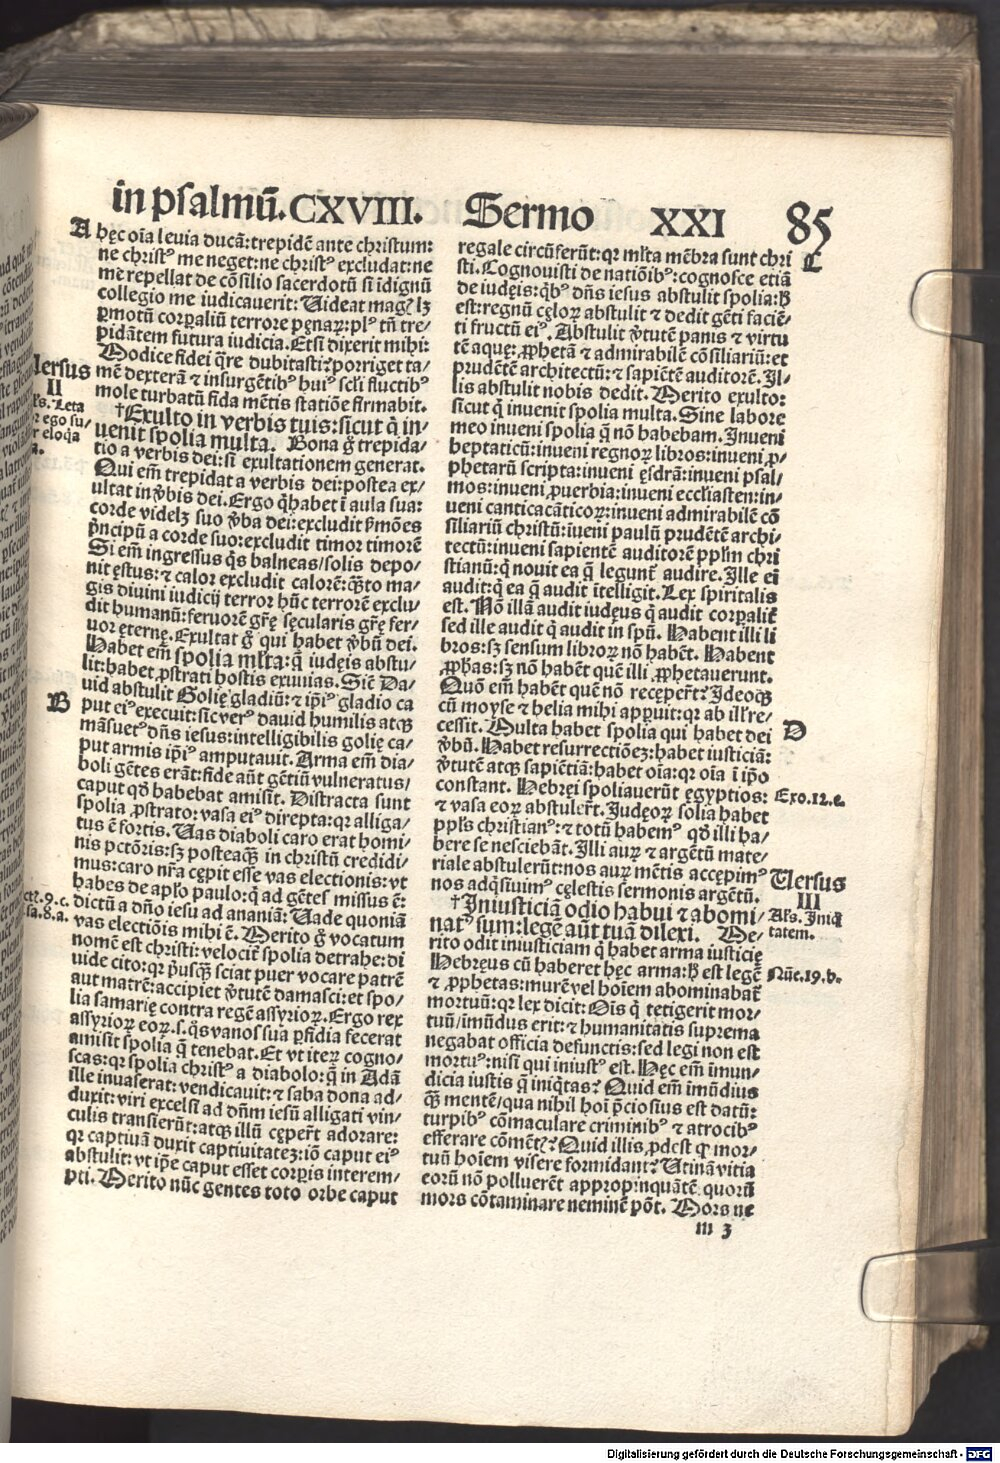 in psalmũ. CXVIII. Sermo XXI 85
A
hęc oĩa levia ducã: trepidẽ ante christum:
ne christꝰ me neget: ne christꝰ excludat: ne
me repellat de cõsilio sacerdotũ si idignũ
collegio me iudicauerit: Uideat magꝭ lꝫ
ꝑmotũ corꝑaliũ terrore pęnaꝝ: plꝰ tñ tre/
pidãtem futura iudicia. Etsi dixerit mihi:
Modice fidei q̃re dubitasti? porriget ta/
mẽ dexterã ⁊ insurgẽtibꝰ huiꝰ scľi fluctibꝰ
mole turbatũ fida mẽtis statiõe firmabit.
†Exulto in verbis tuis: sicut q̃ in/
uenit spolia multa. Bona g̃ trepida/
tio a verbis dei: si exultationem generat.
Qui em̃ trepidat a verbis dei: postea ex/
ultat in v̓bis dei. Ergo q̃ habet ĩ aula sua:
corde videlꝫ suo v̓ba dei: excludit ẜmões
p̓ncipũ a corde suo: excludit timor timorẽ
Si em̃ ingressus q̃s balneas/solis depo/
nit ęstus: ⁊ calor excludit calorẽ: q̃to ma/
gis diuini iudicij terror hũc terrorẽ exclu/
dit humanũ: feruorẽ gr̃ę sęcularis gr̃ę fer/
uor ęternę. Exultat g̃ qui habet v̓bũ dei.
Habet em̃ spolia ml̃ta: q̃ iudęis abstu/
lit: habet ꝓstrati hostis exuuias. Sic̃ Da/
uid abstulit Golię gladiũ: ⁊ ip̃iꝰ gladio ca
put eiꝰ execuit: sic verꝰ dauid humilis atqꝫ
mãsuetꝰ dñs iesus: intelligibilis golię ca/
put armis ip̃iꝰ amputauit. Arma em̃ dia/
boli gẽtes erãt: fide aũt gẽtiũ vulneratus/
caput qď habebat amisit. Distracta sunt
spolia ꝓstrato: vasa eiꝰ direpta: qꝛ alliga/
tus ẽ fortis. Uas diaboli caro erat homi/
nis pctõris: sꝫ posteaqꝫ in christũ credidi/
mus: caro nr̃a cępit esse vas electionis: vt
habes de ap̃lo paulo: q̃ ad gẽtes missus ẽ:
dictũ a dño iesu ad ananiã: Uade quoniã
vas electiõis mihi ẽ. Merito g̃ vocatum
nomẽ est christi: velocit̃ spolia detrahe: di
uide cito: qꝛ p̓usqꝫ sciat puer vocare patrẽ
aut matrẽ: accipiet v̓tutẽ damasci: et spo/
lia samarię contra regẽ assyrioꝝ. Ergo rex
assyrioꝝ eoꝝ. s. q̃s vanos sua ꝑfidia fecerat
amisit spolia q̃ tenebat. Et vt iteꝝ cogno/
scas: qꝛ spolia christꝰ a diabolo: q̃ in Adã
ille inuaserat: vendicauit: ⁊ saba dona ad/
duxit: viri excelsi ad dñm iesũ alligati vin/
culis transierũt: atqꝫ illũ cęper̃t adorare:
qꝛ captiuã duxit captiuitatẽ: iõ caput eiꝰ
abstulit: vt ip̃e caput esset corꝑis interem/
pti. Merito nũc gentes toto orbe caput
Uersus
II
Aľs. Leta
r eloq̃a
B
Act. 9. c.
Isa. 8. a.
regale circũferũt: qꝛ ml̃ta mẽbra sunt chri
sti. Cognouisti de natiõibꝰ: cognosce etiã
de iudęis: q̃bꝰ dñs iesus abstulit spolia: ꝕ
est: regnũ cęloꝝ abstulit ⁊ dedit gẽti faciẽ/
ti fructũ eiꝰ. Abstulit v̓tutẽ panis ⁊ virtu
tẽ aquę: ꝓphetã ⁊ admirabilẽ cõsiliariũ: et
prudẽtẽ architectũ: ⁊ sapiẽtẽ auditorẽ. Il/
lis abstulit nobis dedit. Merito exulto:
sicut q̃ inuenit spolia multa. Sine labore
meo inueni spolia q̃ nõ habebam. Inueni
heptaticũ: inueni regnoꝝ libros: inueni ꝓ/
phetarũ scripta: inueni ęsdrã: inueni psal/
mos: inueni ꝓuerbia: inueni eccľiasten: in/
ueni cantica cãticoꝝ: inueni admirabilẽ cõ
siliariũ christũ: iueni paulũ prudẽtẽ archi/
tectũ: inueni sapientẽ auditorẽ pp̃lm chri
stianũ: q̃ nouit ea q̃ legunt̃ audire. Ille ei
audit: q̃ ea q̃ audit itelligit. Lex spiritalis
est. Nõ illã audit iudęus q̃ audit corꝑalit̃
sed ille audit q̃ audit in spũ. Habent illi li
bros: sꝫ sensum libroꝝ nõ habẽt. Habent
ꝓphãs: sꝫ nõ habẽt quẽ illi ꝓphetauerunt.
Quõ em̃ habẽt quẽ nõ receper̃t? Ideoqꝫ
cũ moyse ⁊ helia mihi apparuit: qꝛ ab ill̃ re/
cessit. Multa habet spolia qui habet dei
v̓bũ. Habet resurrectiõeꝫ: habet iusticiã:
v̓tutẽ atqꝫ sapiẽtiã: habet oĩa: qꝛ oĩa ĩ ip̃o
constant. Hebręi spoliauerũt ęgyptios:
⁊ vasa eoꝝ abstuler̃t. Judęoꝝ spolia habet
pp̃ls christianꝰ: ⁊ totũ habemꝰ qď illi ha/
bere se nesciebãt. Illi auꝝ ⁊ argẽtũ mate/
riale abstulerũt: nos auꝝ mẽtis accępimꝰ
nos adq̃siuimꝰ cęlestis sermonis argẽtũ.
†Iniusticiã odio habui ⁊ abomi/
natꝰ sum: legẽ aũt tuã dilexi. Me/
rito odit iniusticiam q̃ habet arma iusticię
Hebręus cũ haberet hęc arma: ꝕ est legẽ
⁊ ꝓphetas: murẽ vel hoĩem abominabat̃
mortuũ: qꝛ lex dicit: Oĩs q̃ tetigerit mor/
tuũ/imũdus erit: ⁊ humanitatis suprema
negabat officia defunctis: sed legi non est
mortuꝰ: nisi qui iniustꝰ est. Hęc em̃ imun/
dicia iustis q̃ iniq̃tas? Quid em̃ imũdius
qꝫ mentẽ/qua nihil hoĩ p̓ciosius est datũ:
turpibꝰ cõmaculare criminibꝰ ⁊ atrocibꝰ
efferare cõmẽtꝭ? Quid illis ꝓdest ꝙ mor/
tuũ hoĩem visere formidant? Utinã vitia
eorũ nõ polluerẽt appropinquãtẽ quorũ
mors cõtaminare neminẽ põt. Mors ne
C
D
Exo. 12. e.
Uersus
III
Aľs. Iniq̃
tatem.
Nũe. 19. b.
m 3
Digitalisierung gefördert durch die Deutsche Forschungsgemeinschaft - DFG